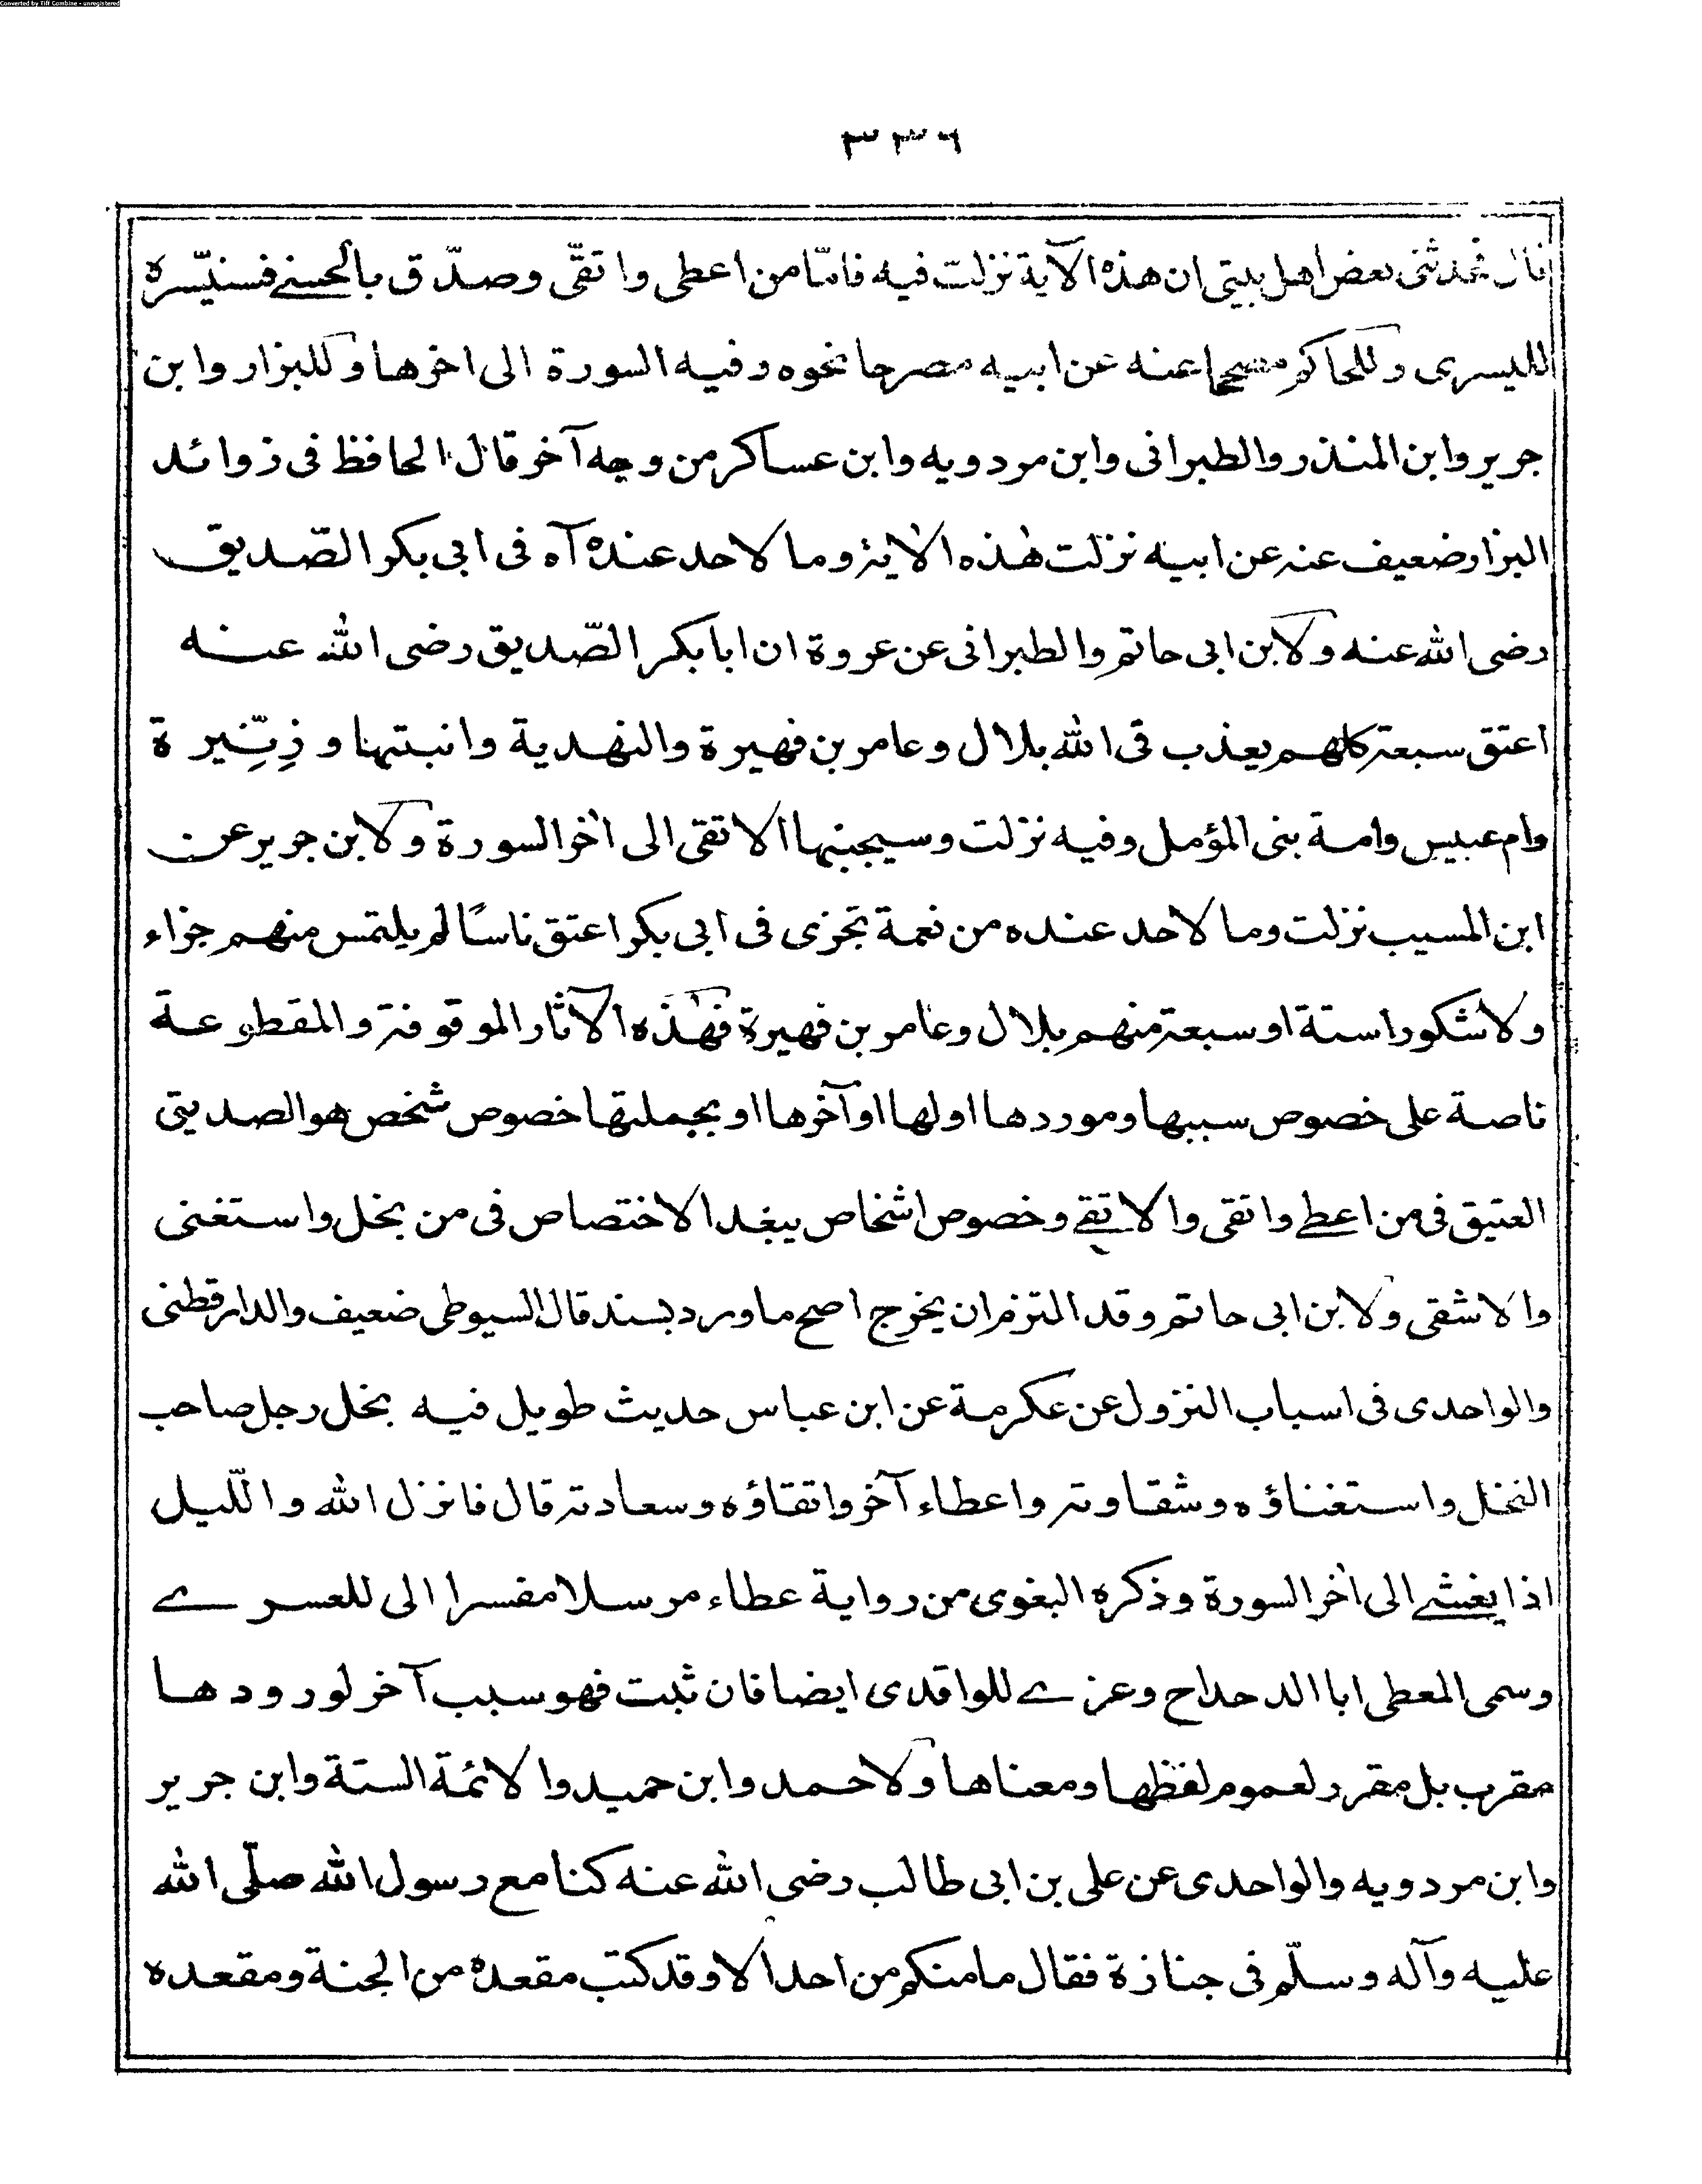 Converted by Tiff Combine - unregistered
٣٣٦
قال فحدثنی بعض اهل بیتی ان هذه الآیة نزلت فیه فامّا من اعطی واتقّی وصدّق بالحسنے فسنیّسره
للیسری وللحاکم مصححا عنه عن ابیه مصرحا نحوه وفیه السورة الی اخرها وللبزار وابن
جریر وابن المنذر والطبرانی وابن مردویه وابن عساکر من وجه آخر قال الحافظ فی زوائد
البزار ضعیف عنه عن ابیه نزلت هٰذه الاٰیة وما لاحد عنده آه فی ابی بکر الصّدیق
رضی الله عنه ولابن ابی حاتم والطبرانی عن عروة ان ابا بکر الصّدیق رضی الله عنه
اعتق سبعة کلهم یعذب فی الله بلال وعامر بن فهیرة والنهدیة وانبتها و زِنِّیرة
وام عبیس وامة بنی المؤمل وفیه نزلت وسیجنبها الاتقی الی اٰخر السورة ولابن جریر عن
ابن المسیب نزلت وما لاحد عنده من نعمة تجزی فی ابی بکر اعتق ناسًا لم یلتمس منهم جزاء
ولا شکورا ستة او سبعة منهم بلال وعامر بن فهیرة فهٰذه الآثار الموقوفة والمقطوعة
ناصة علی خصوص سببها وموردها اولها او آخرها او بجملتها خصوص شخص هو الصدیق
العتیق فی من اعطے واتقی والاتقے وخصوص اشخاص یبغد الاختصاص فی من بخل واستغنی
والاشقی ولابن ابی حاتم وقد التزم ان یخرج اصح ما ورد بسند قال السیوطی ضعیف والدارقطنی
والواحدی فی اسباب النزول عن عکرمة عن ابن عباس حدیث طویل فیه بخل رجل صاحب
النخل واستغناؤه وشقاوته واعطاء آخر واتقاؤه وسعادته قال فانزل الله والّلیل
اذا یغشے الی اٰخر السورة وذکره البغوی من روایة عطاء مرسلا مفسرا الی للعسرے
وسمی المعطی ابا الدحداح وعزے للواقدی ایضا فان ثبت فهو سبب آخر لورودها
مقرب بل مقرر لعموم لفظها ومعناها ولاحمد وابن حمید والائمة الستة وابن جریر
وابن مردویه والواحدی عن علی بن ابی طالب رضی الله عنه کنا مع رسول الله صلّی الله
علیه وآله وسلّم فی جنازة فقال ما منکم من احد الا وقد کتب مقعده من الجنة ومقعده